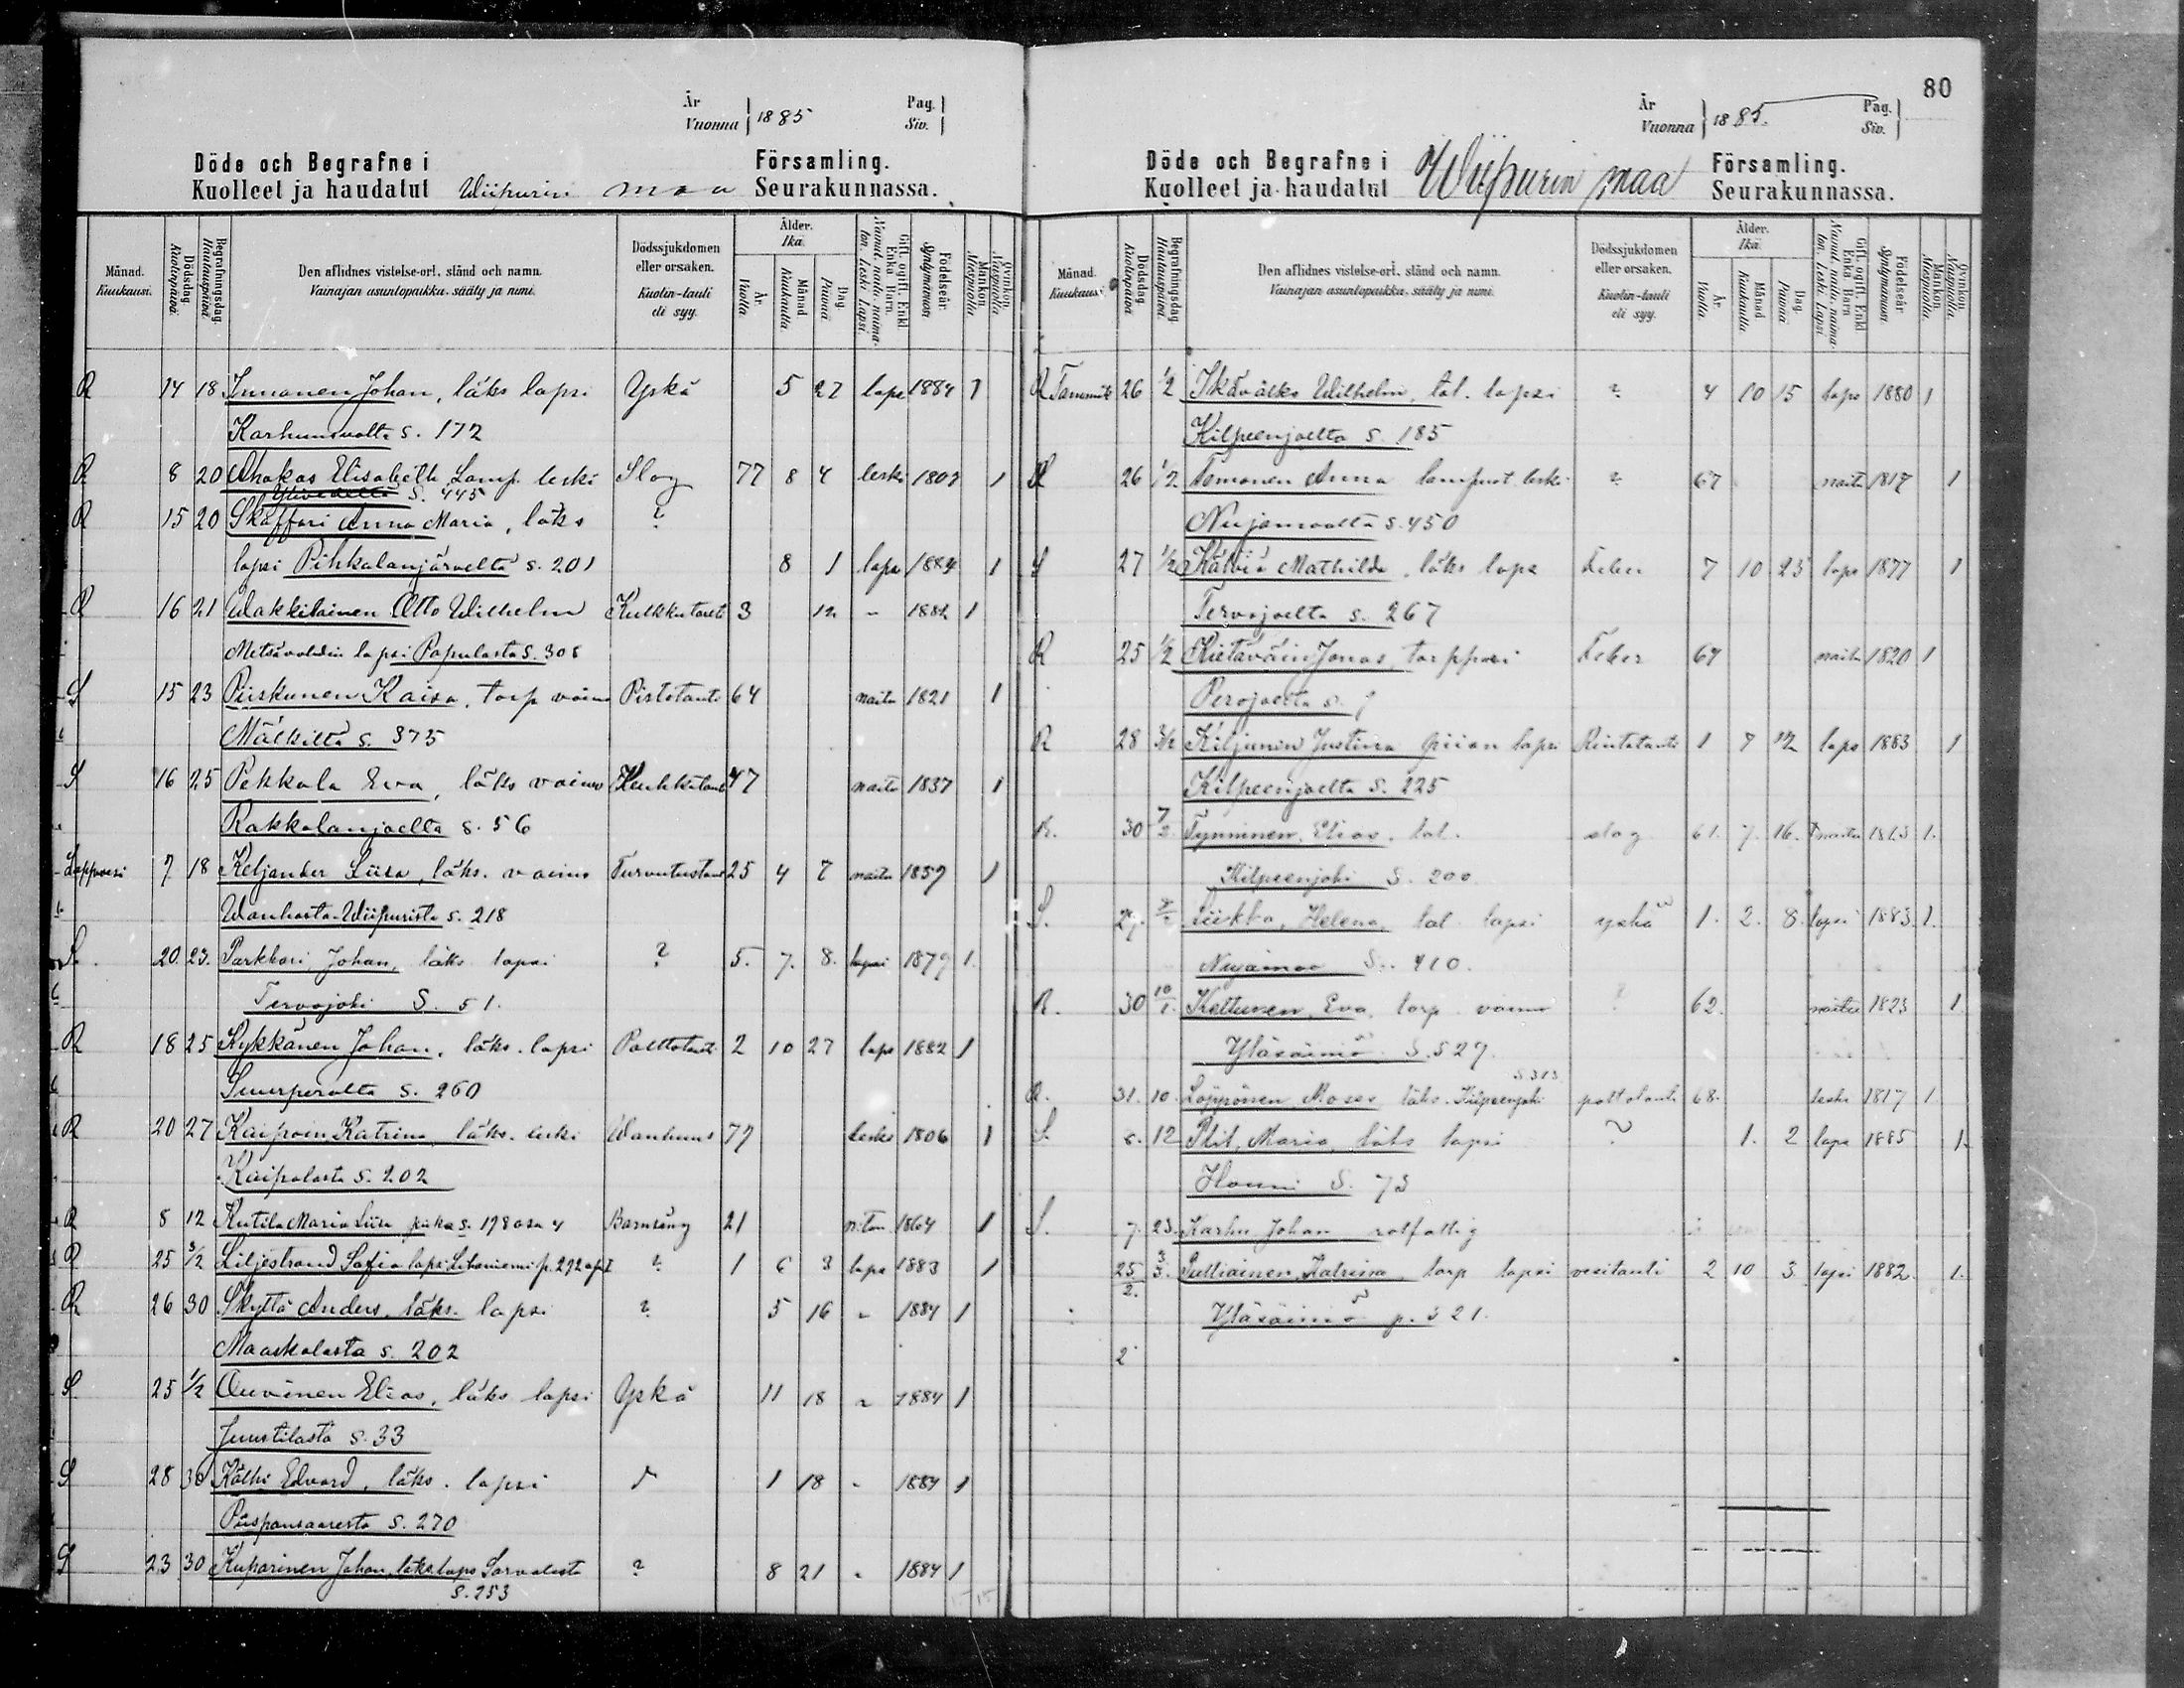 År Vuonna 1885 Pag. Siv.
Döde och Begrafne i Församling.
Kuolleet ja haudatut Wiipurin maa Seurakunnassa.
Månad. Kuukausi. Dödsdag. Kuolinpäivä. Begrafningsdag. Hautauspäivä. Den aflidnes vistelse-ort, stånd och namn. Vainajan asuntopaikka, sääty ja nimi. Dödssjukdomen eller orsaken. Kuolin-tauti eli syy. Ålder. Ikä. År. Vuotta. Månad. Kuukautta. Dag. Päivää. Gift, ogift, Enkl. Enka Barn. Nainut, naitu, naimaton, leski, Lapsi. Födelseår. Syntymävuosi. Mankön. Miespuolia. Qvinkön. Naispuolia.
R 14 18 Innanen Johan, läks lapsi Yskä 5 27 laps 1884 1
Karhunsuolta s. 172
R 8 20 Ahokas Elisabeth Lamp. leski Slag 77 8 4 leski 1807 1
Ylivedeltä S. 445
R 15 20 Skaffari Anna Maria, läks ?
lapsi Pihkalanjärveltä s. 201 8 1 laps 1884 1
R 16 21 Wakkilainen Otto Wilhelm Kulkkutauti 3 12 " 1882 1
Metsävahdin lapsi Papulasta S. 308
S 15 23 Piiskunen Kaisa, torp vaimo Pistotauti 64 naitu 1821 1
Mälkiltä s. 375
S 16 25 Pekkala Eva, läks vaimo 47 naitu 1837 1
Rakkalanjoelta s. 56
Lappvesi 7 18 Keljander Liisa, läks. vaimo 25 4 7 naitu 1859 1
Wanhasta-Wiipurista s. 218
S. 20. 23. Parkkari Johan, läks lapsi ? 5. 7. 8. lapsi 1879 1.
Tervajoki S. 51.
R 18 25 Kykkänen Johan, läks. lapsi Polttotauti 2 10 27 laps 1882 1
Suurperolta s. 260
R 20 27 Kaipiain Katrina, läks. leski Wanhuus 79 leski 1806 1
Kaipolasta s. 202
R 8 12 Kutila Maria Liisa piika s. 198 osa 4 Barnsäng 21 n:ton 1864 1
R 25 3/2 Liljestrand Sofia lapsi Lihaniemi p. 292 ? 1 6 3 laps 1883 1
R 26 30 Skyttä Anders, läks. lapsi ? 5 16 " 1884 1
Maaskolasta s. 202
S 25 1/2 Auvinen Elias, läks lapsi Yskä 11 18 " 1884 1
Juustilasta s. 33
S 28 30 Käthi Edvard, läks. lapsi 1 18 " 1884 1
Piispansaaresta s. 270
S 23 30 Kuparinen Johan, läks. laps Sarvelasta ? 8 21 " 1884 1
S. 253
80
År Vuonna 1885. Pag. Siv.
Döde och Begrafne i Församling.
Kuolleet ja haudatut Wiipurin maa Seurakunnassa.
Månad. Kuukausi. Dödsdag. Kuolinpäivä. Begrafningsdag. Hautauspäivä. Den aflidnes vistelse-ort, stånd och namn. Vainajan asuntopaikka, sääty ja nimi. Dödssjukdomen eller orsaken. Kuolin-tauti eli syy. Ålder. Ikä. År. Vuotta. Månad. Kuukautta. Dag. Päivää. Gift, ogift, Enkl. Enka Barn. Nainut, naitu, naimaton, leski, Lapsi. Födelseår. Syntymävuosi. Mankön. Miespuolia. Qvinkön. Naispuolia.
R Tammik 26 1/2 Ikävalko Wilhelm, tal. lapsi ? 4 10 15 laps 1880 1
Kilpeenjoelta s. 185
26 1/2 Tomonen Anna leski ? 67 naitu 1817 1
Nuijamaalta s. 450
S 27 1/2 Kälviä Mathilda, läks laps Feber 7 10 23 laps 1877 1
Tervajoelta s. 267
R 25 1/2 Kietäväin Jonas, torppari Feber 64 naitu 1820 1
Perojoelta s.
R 28 3/2 Kiljunen Justina piian lapsi Rintatauti 1 7 12 laps 1883 1
Kilpeenjoelta s. 225
R. 30 7/2 Tynninen, Elias, tal. slag 61. 7. 16. naitu 1823 1.
Kilpeenjoki S. 200
S. 27. 8/2 Liikka, Helena, tal. lapsi yskä 1. 2. 8. lapsi 1883. 1.
Nuijamaa S. 410.
R. 30 10/1. Kettunen, Eva, torp. vaimo ? 62. naitu 1823 1.
Yläsäiniö S. 527.
S 313
R. 31. 10. Löppönen Moses läks. Kilpeenjoki polttotauti 68. leski 1817 1.
S. 8. 12 Plit, Maria, läks lapsi ? 1. 2 laps 1885 1.
Hounni S. 73
S. 7. 23. Karhu Johan rotfattig
25/2. 3/3. Pulliainen, Katriina, torp lapsi vesitauti 2 10 3 lapsi 1882. 1.
Yläsäiniö p. 521.
2